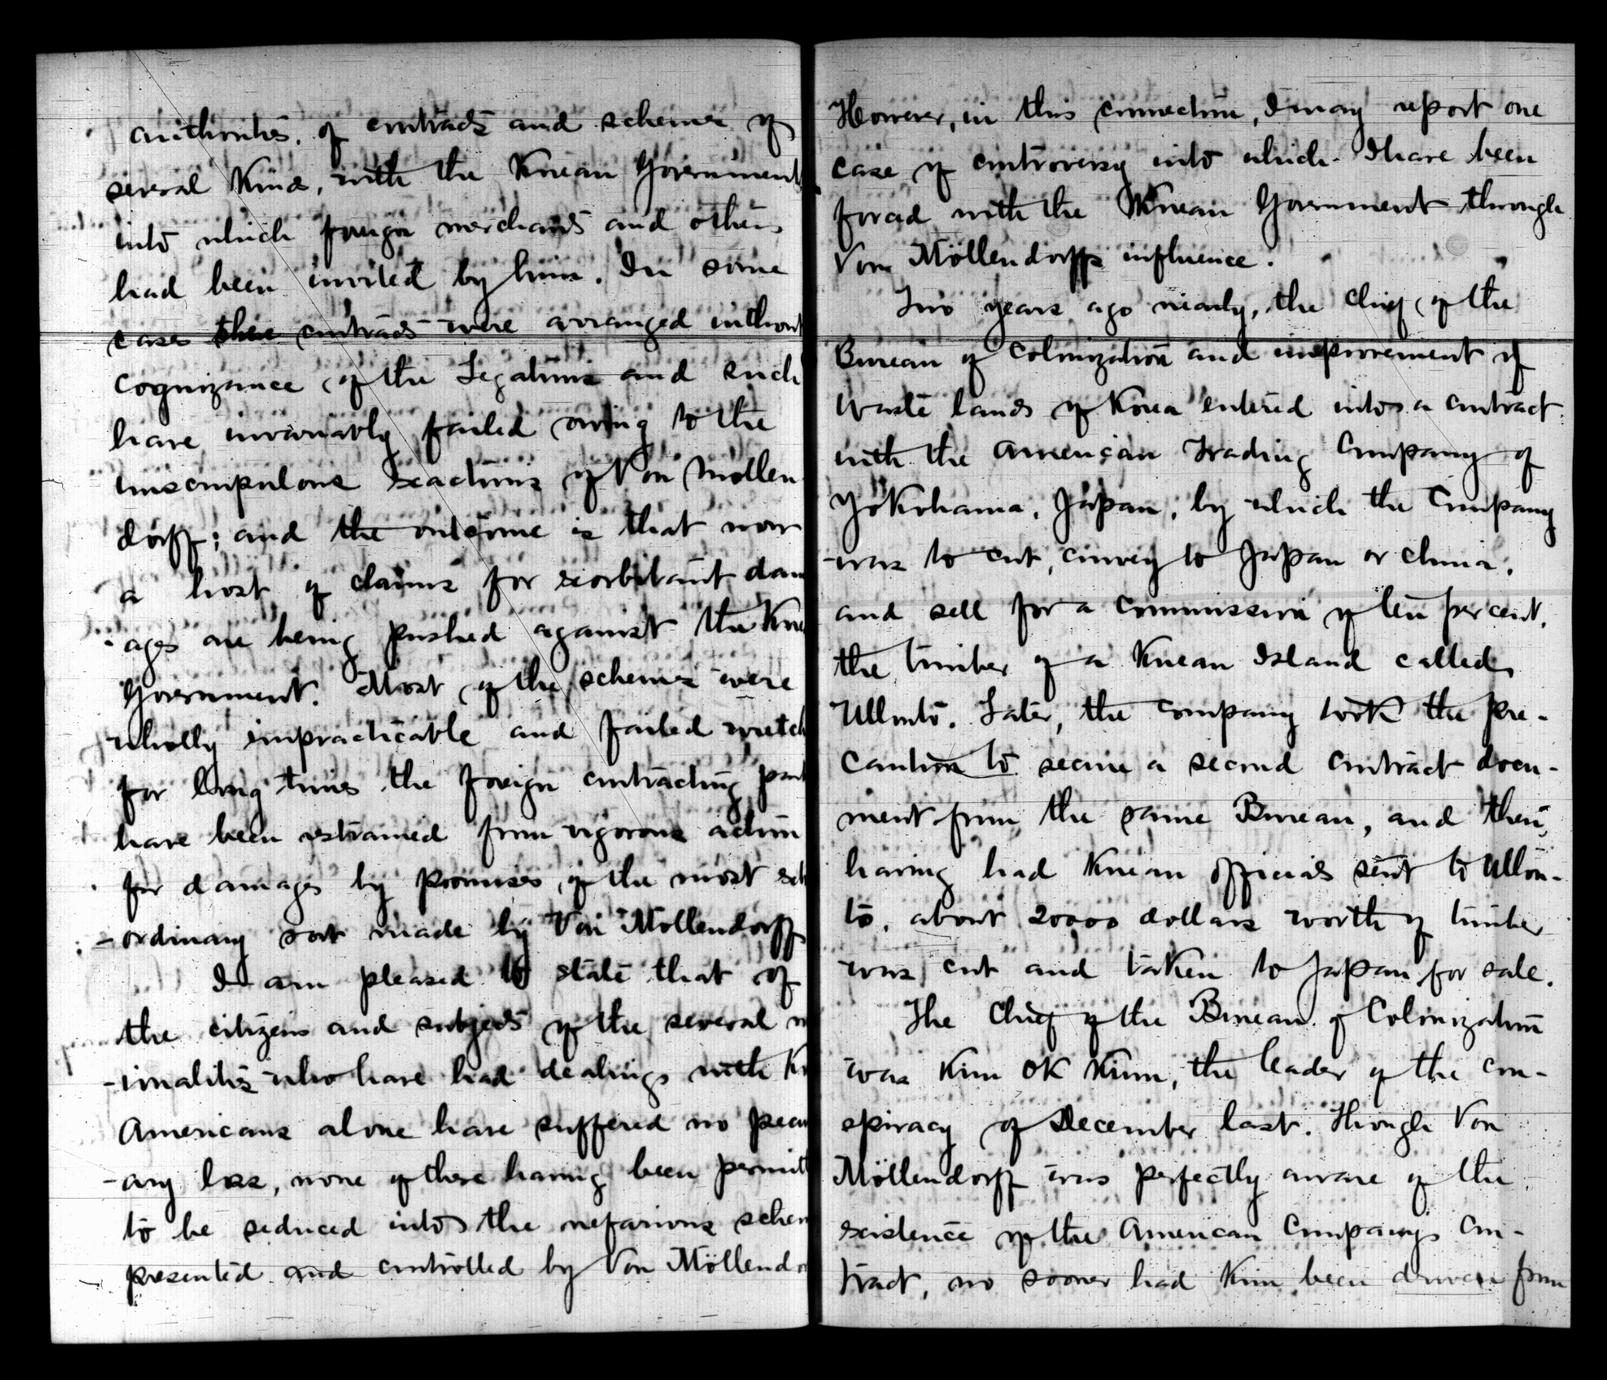 authorities, of contracts and schemes of
several kinds, with the Korean Government
into which foreign merchants and others
had been invited by him. In some
cases these contracts were arranged without
cognizance of the Legations and such
have invariably failed owing to the
unscrupulous exactions of Von Mollen
dorff; and the outcome is that now
a host of claims for exorbitant dam
ages are being pushed against the Kore
Government. Most of the schemes were
wholly impracticable and failed wretch
for long times the foreign contracting part
have been restrained from vigorous action
for damages by promises of the most
-ordinary sort made by Von Mollendorff
I am pleased to state that of
the citizens and subjects of the several n
-ionalities who have had dealings with K
Americans alone have suffered no pecun
-ary loss, none of these having been permitt
to be seduced into the nefarious schem
presented and controlled by Von Möllendo
However, in this connection, I may report one
case of controversy into which I have been
forced with the Korean Government through
Von Möllendorffs influence.
Two years ago nearly, the chief of the
Bureau of colonization and improvement of
Waste lands of Korea entered into a contract
with the American Trading Company of
Yokohama, Japan, by which the Company
was to cut, convey to Japan or China,
and sell for a commission of ten per cent,
the timber of a Korean Island called
Ullonto. Later, the company took the pre-
caution to secure a second contract docu-
ment from the same Bureau, and then,
having had Korean officials sent to Ullon-
to, about 20000 dollars worth of timber
was cut and taken to Japan for sale.
The Chief of the Bureau of Colonization
was Kim OK Kiun, the leader of the con-
spiracy of December last. Though Von
Möllendorff was perfectly aware of the
existence of the American Companys con-
tract, no sooner had Kim been driven from